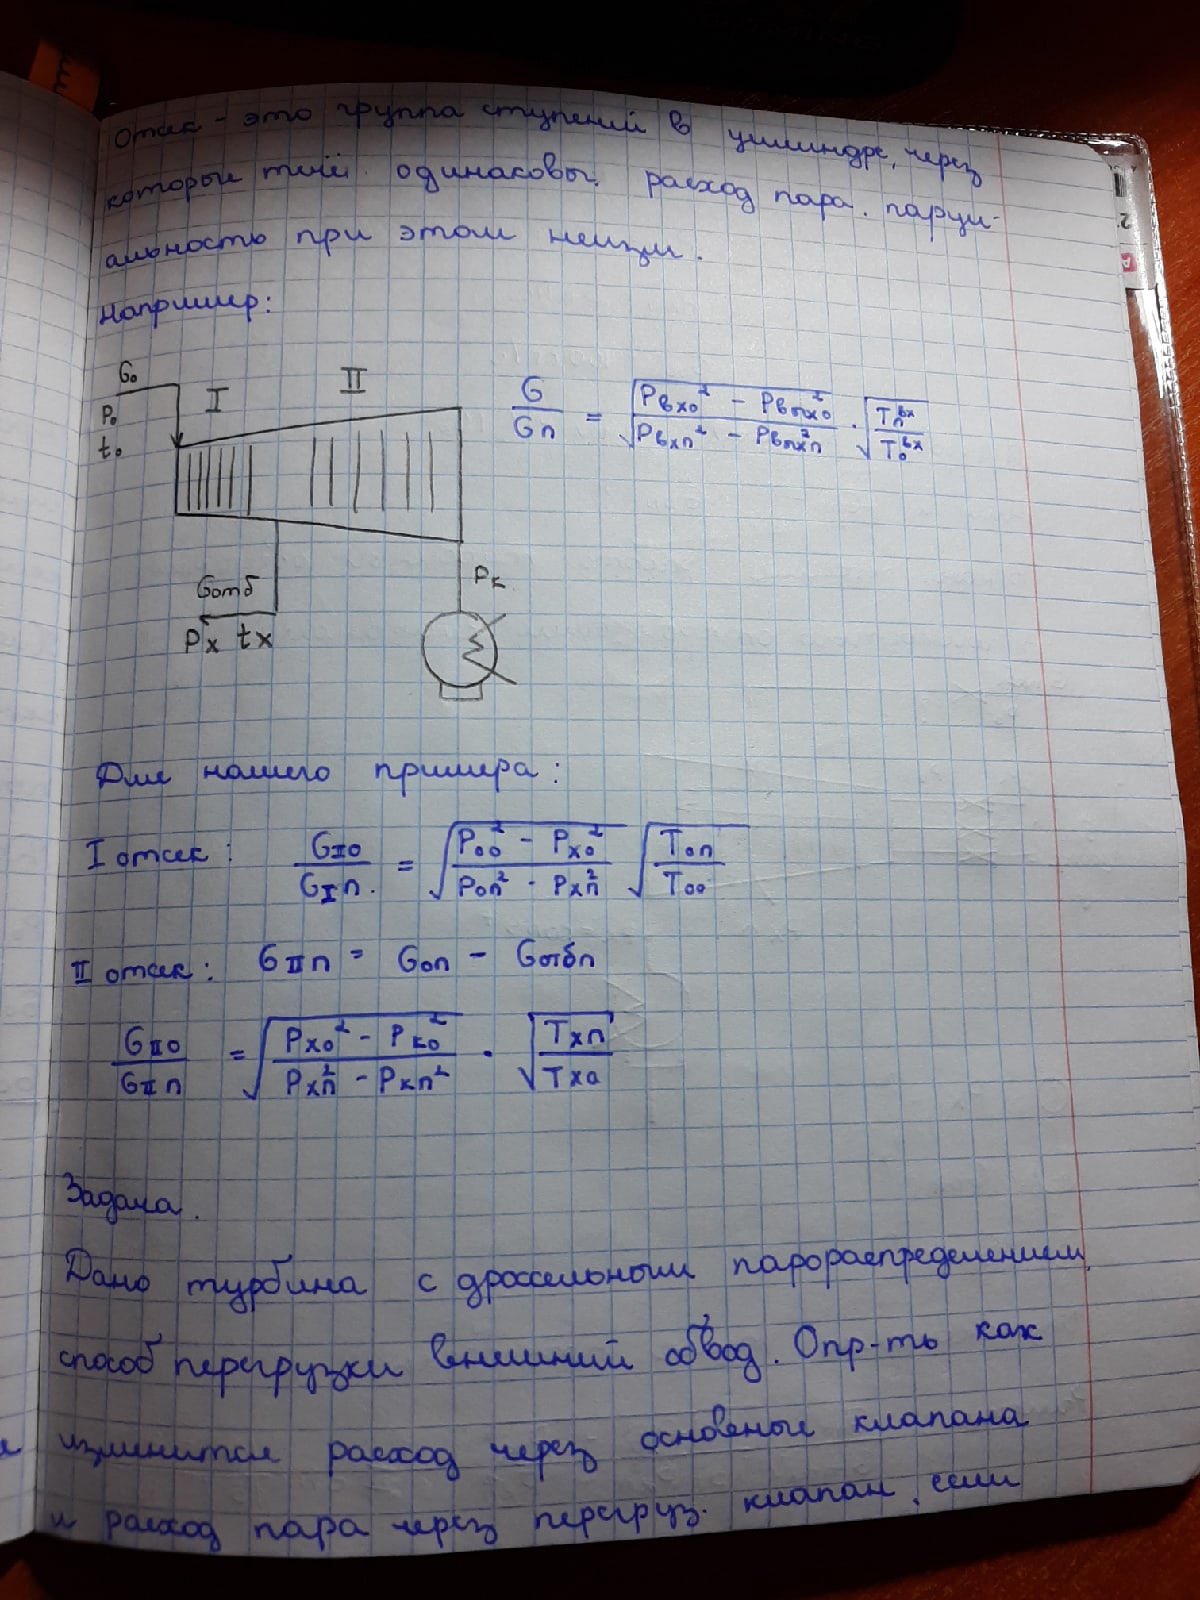 отсек - это группа ступеней в цилиндре, через
которые течёт одинаковый расход пара. парци-
альность при этом неизм.
Например:
G₀ I II
P₀
t₀
G/Gп = √((Pвх₀² - Pвых₀²)/(Pвхп² - Pвыхп²)) · √(Tпᵇˣ/T₀ᵇˣ)
Gотб
Pх tх
Pк
Для нашего примера:
I отсек: GI₀/GIп. = √((P₀₀² - Pх₀²)/(P₀п² - Pхп²)) √(T₀п/T₀₀)
II отсек: GIIп = G₀п - Gотбп
GII₀/GIIп = √((Pх₀² - Pк₀²)/(Pхп² - Pкп²)) · √(Tхп/Tх₀)
Задача.
Дано турбина с дроссельным парораспределением,
способ перегрузки внешний обвод. Опр-ть как
изменится расход через основные клапана
и расход пара через перегруз. клапан, если